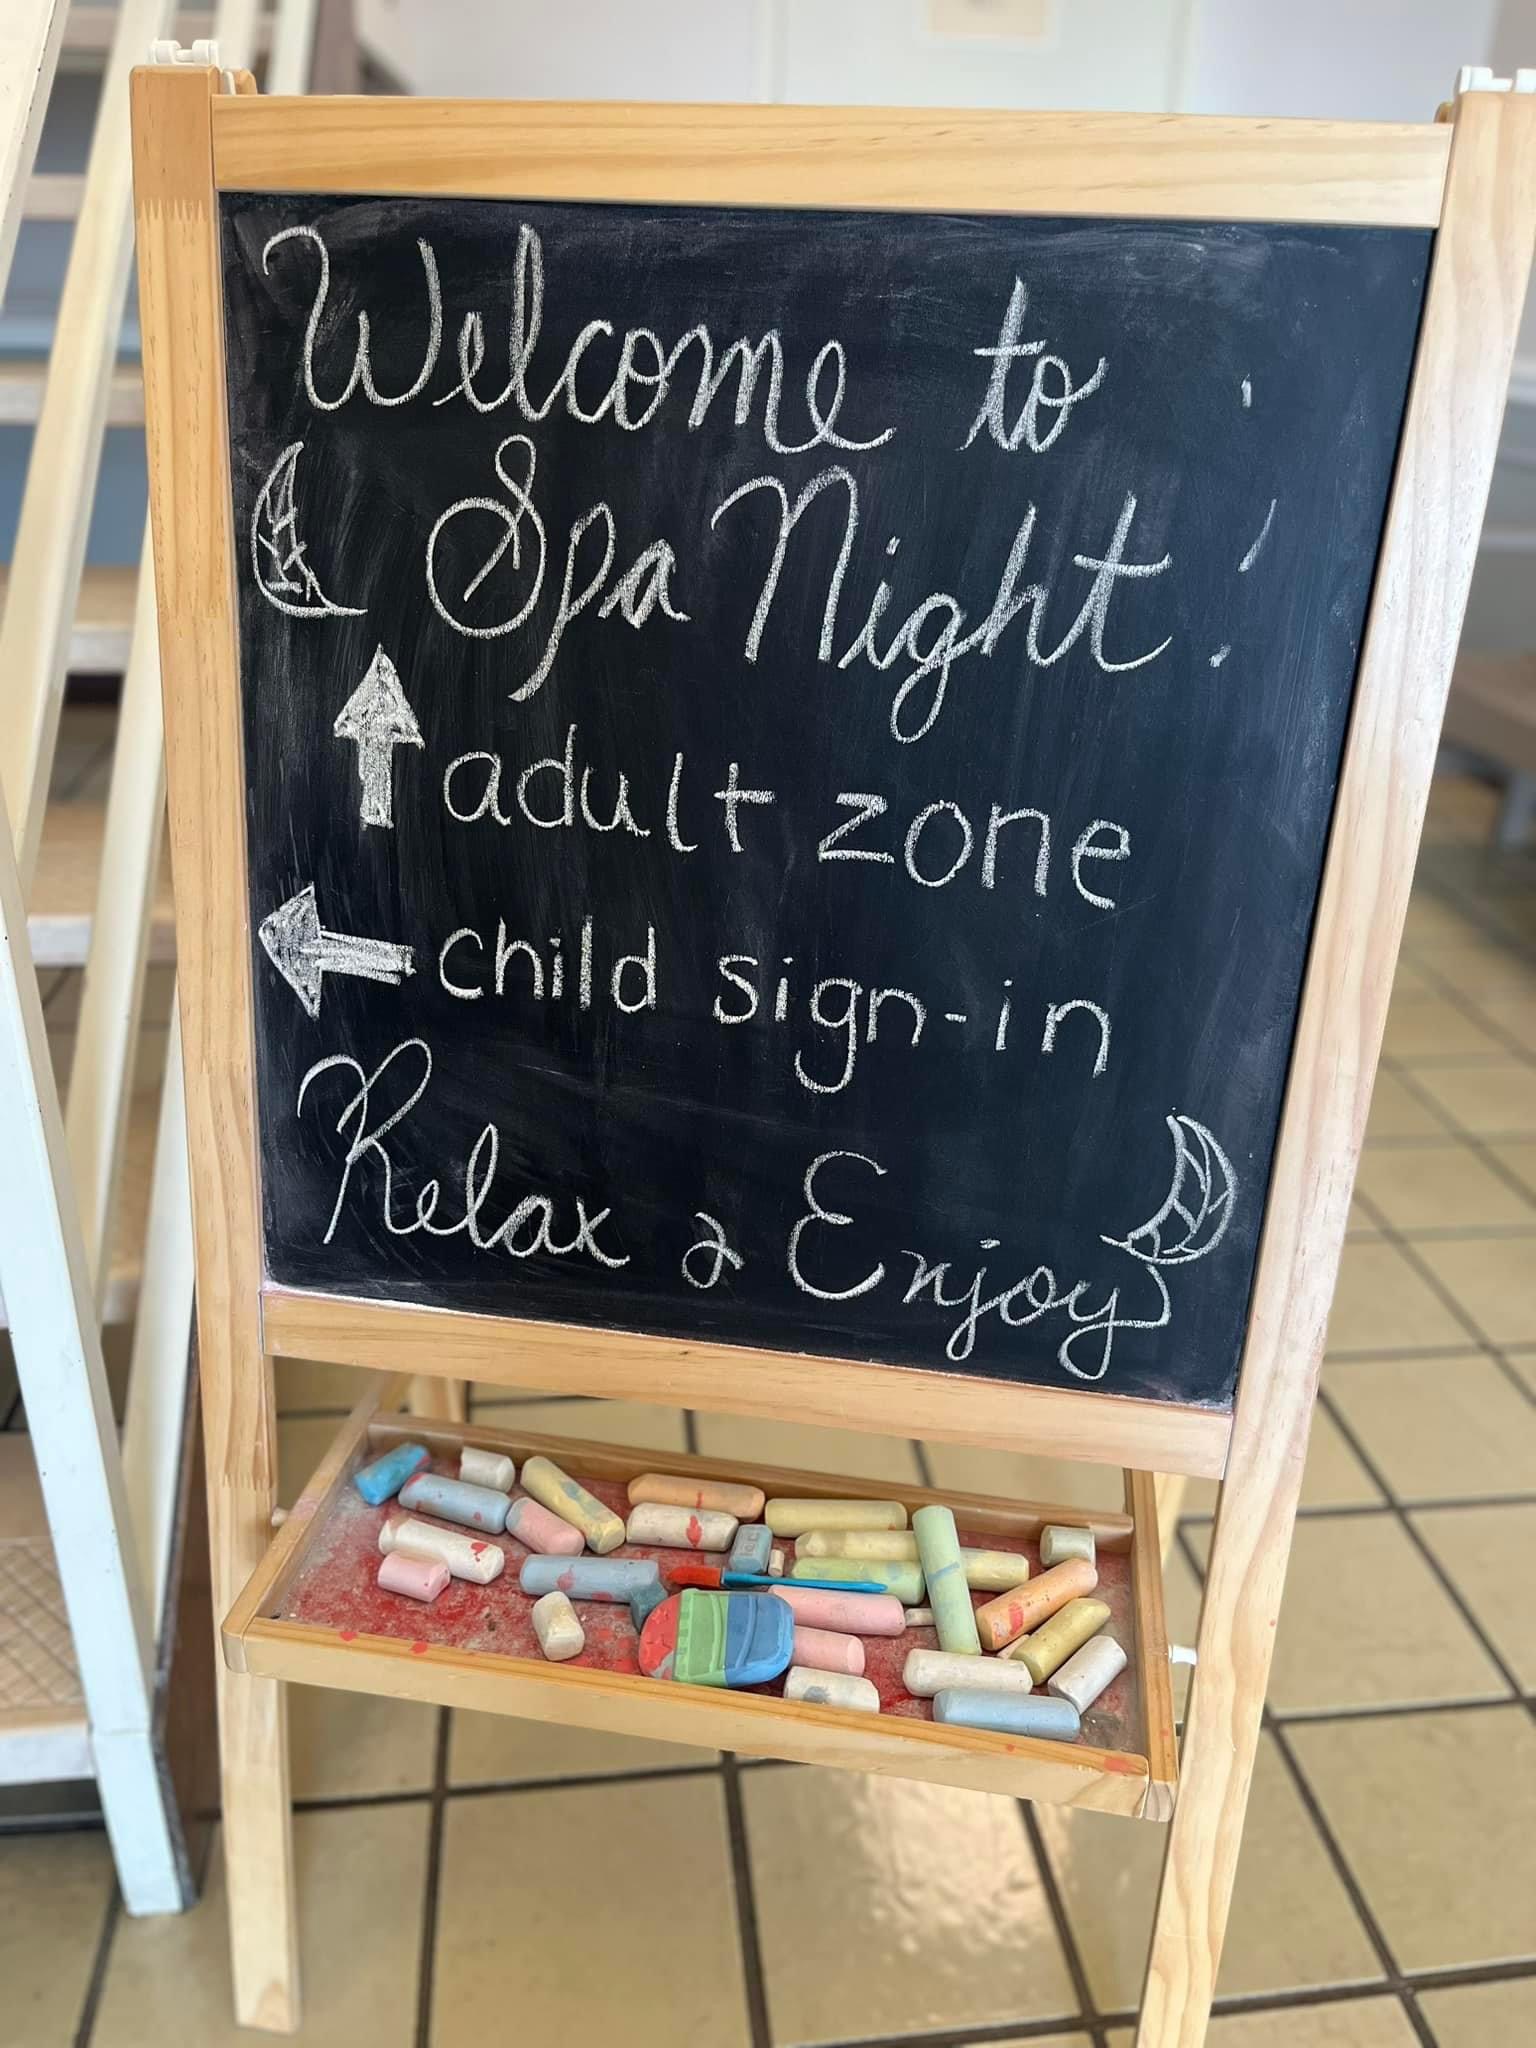 Welcome to
Spa Night!
adult zone
child sign-in
Relax & Enjoy